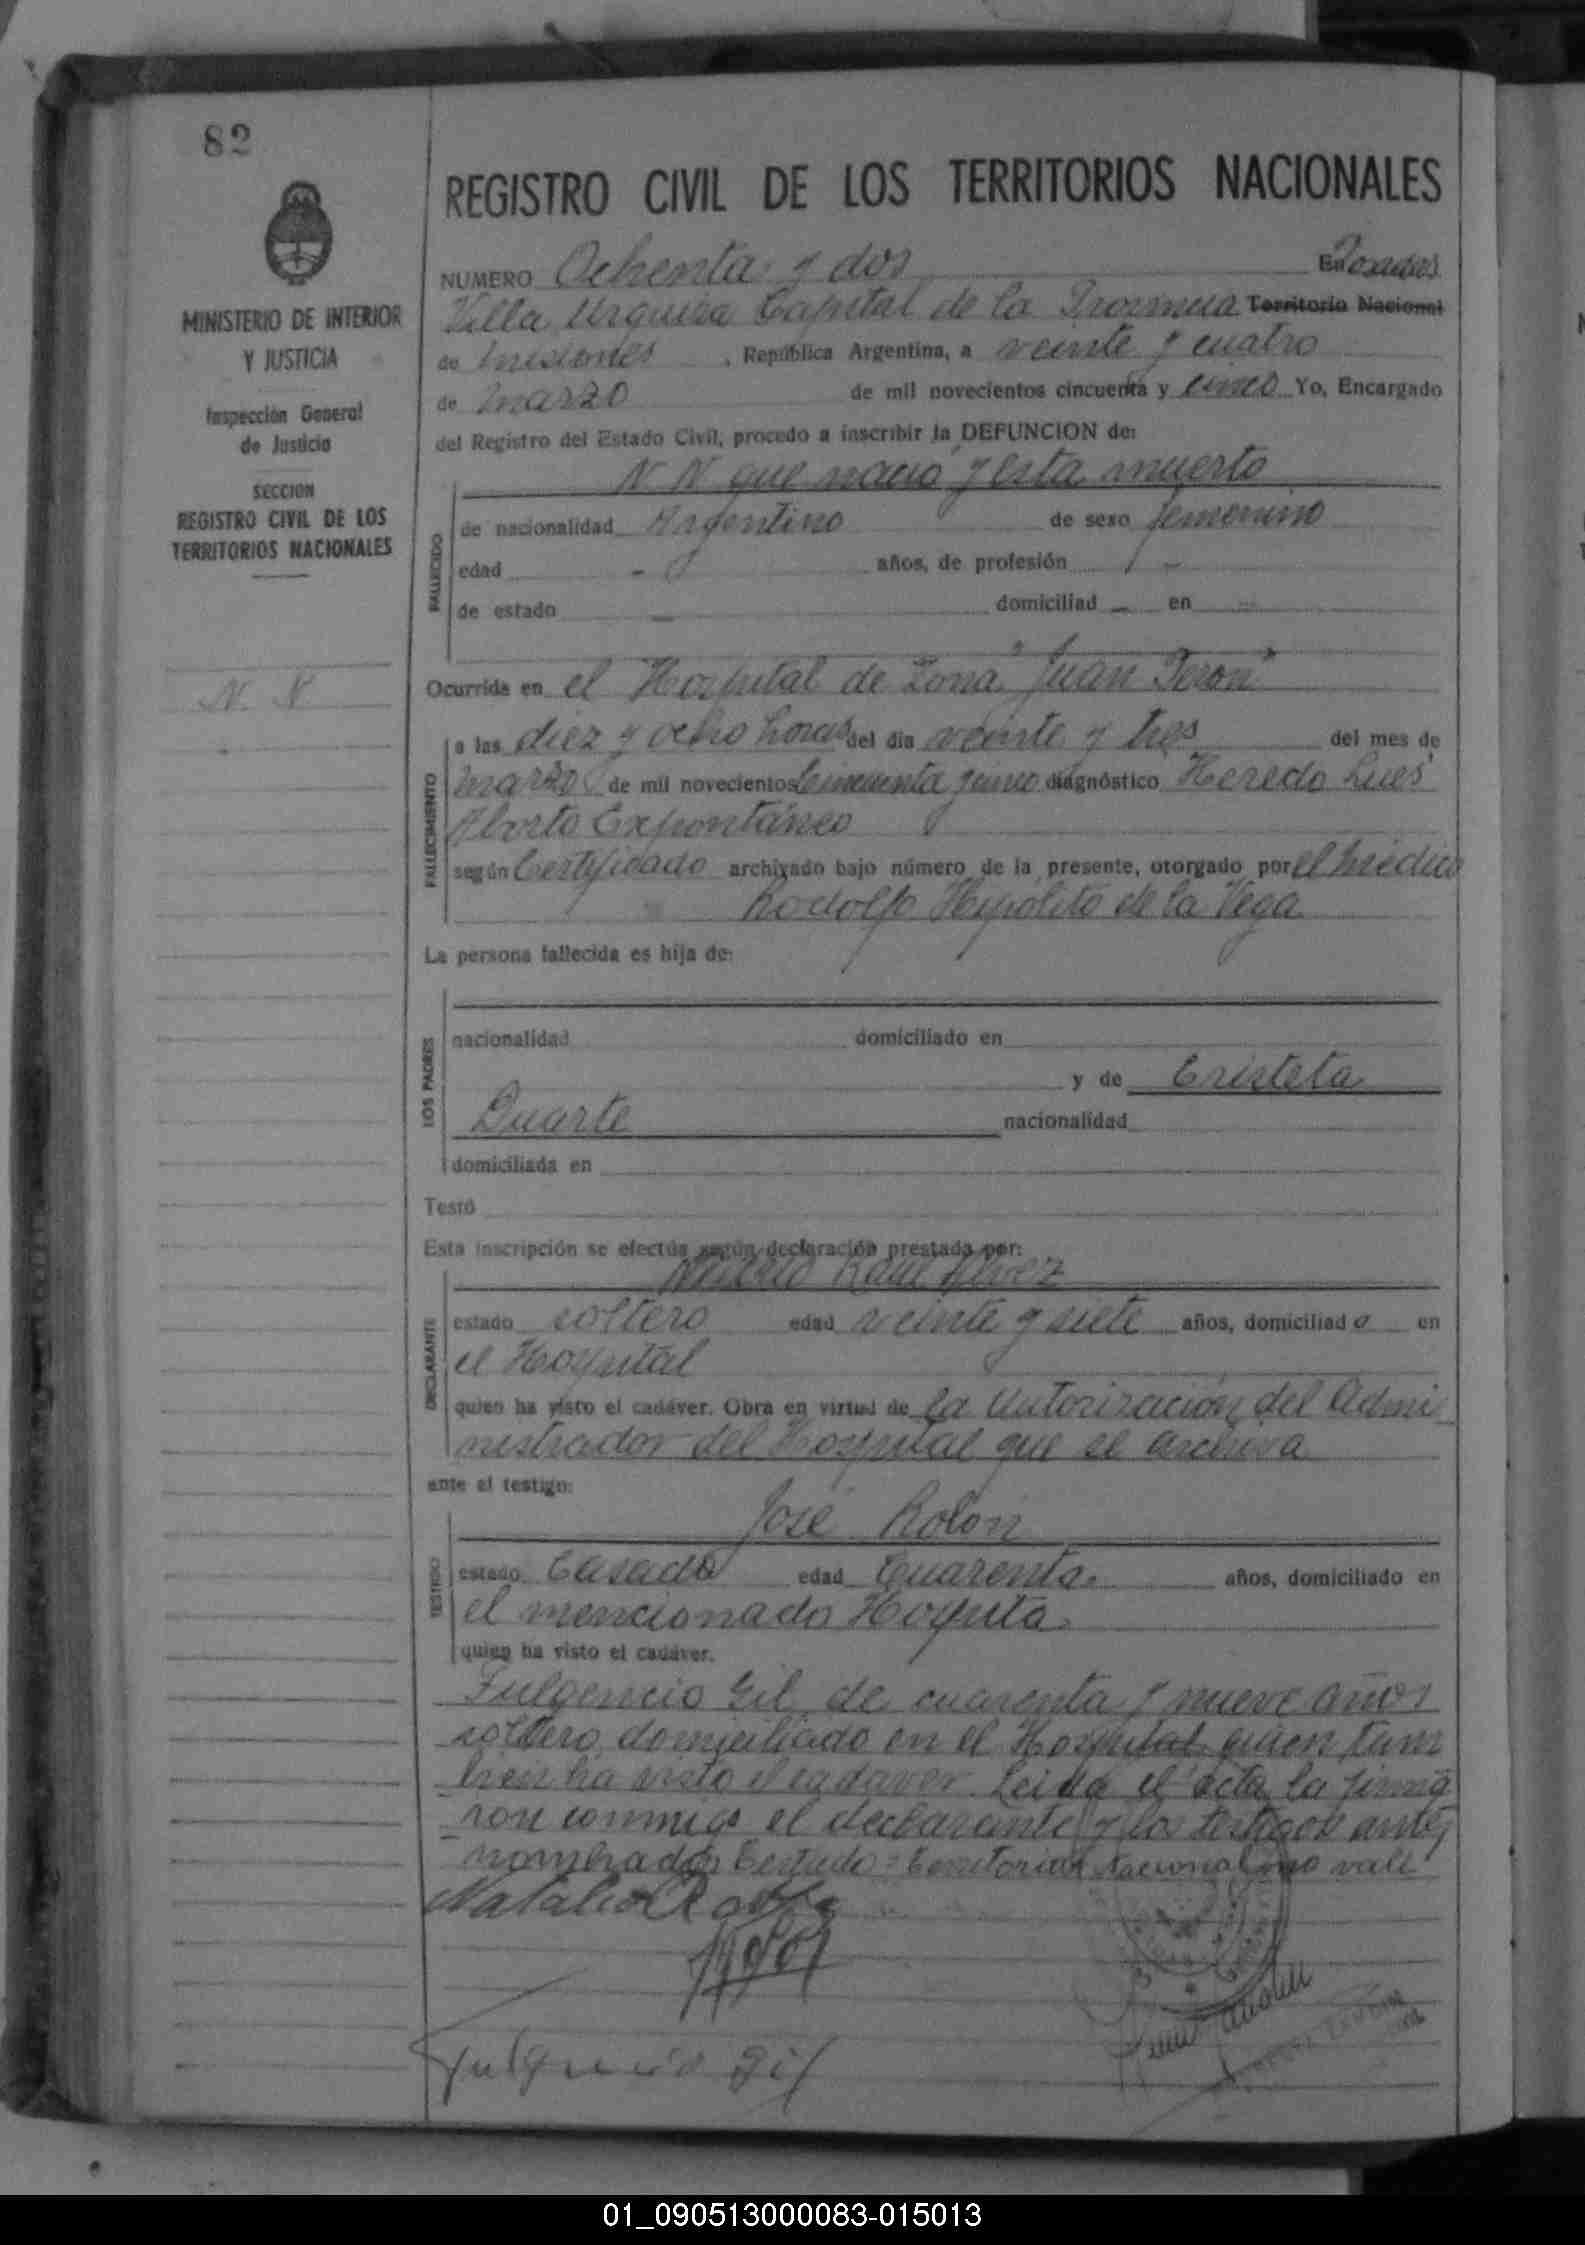 82
REGISTRO CIVIL DE LOS TERRITORIOS NACIONALES
MINISTERIO DE INTERIOR
Y JUSTICIA
Inspección General
de Justicia
SECCION
REGISTRO CIVIL DE LOS
TERRITORIOS NACIONALES
N. N.
NUMERO Ochenta y dos En Posadas
Villa Urquiza Capital de la Provincia Territorio Nacional
de Misiones , República Argentina, a veinte y cuatro
de Marzo de mil novecientos cincuenta y cinco Yo, Encargado
del Registro del Estado Civil, procedo a inscribir la DEFUNCION de:
FALLECIDO
N N que nació y esta muerto
de nacionalidad Argentino de sexo femenino
edad - años, de profesión -
de estado - domiciliad - en -
Ocurrida en el Hospital de Zona "Juan Peron"
FALLECIMIENTO
a las diez y ocho horas del día veinte y tres del mes de
Marzo de mil novecientos Cincuenta y cinco diagnóstico Heredo Lues
Aborto Expontáneo
según Certificado archivado bajo número de la presente, otorgado por el médico
Rodolfo Hipólito de la Vega
La persona fallecida es hija de:
LOS PADRES
nacionalidad domiciliado en
y de Cristeta
Duarte nacionalidad
domiciliada en
Testó
Esta inscripción se efectúa según declaración prestada por:
DECLARANTE
Raul
estado soltero edad veinte y siete años, domiciliad o en
el Hospital
quien ha visto el cadáver. Obra en virtud de la Autorización del Admi
nistrador del Hospital que se archiva
ante el testigo:
TESTIGO
José Rolon
estado Casado edad Cuarenta años, domiciliado en
el mencionado Hospital
quien ha visto el cadáver.
Fulgencio Gil de cuarenta y nueve años
soltero domiciliado en el Hospital quien tam
bien ha visto el cadaver Leida el acta la firma
ron conmigo el declarante y los testigos antes
nombrados Testado = Territorio Nacional no vale
Fulgencio Gil
01_090513000083-015013